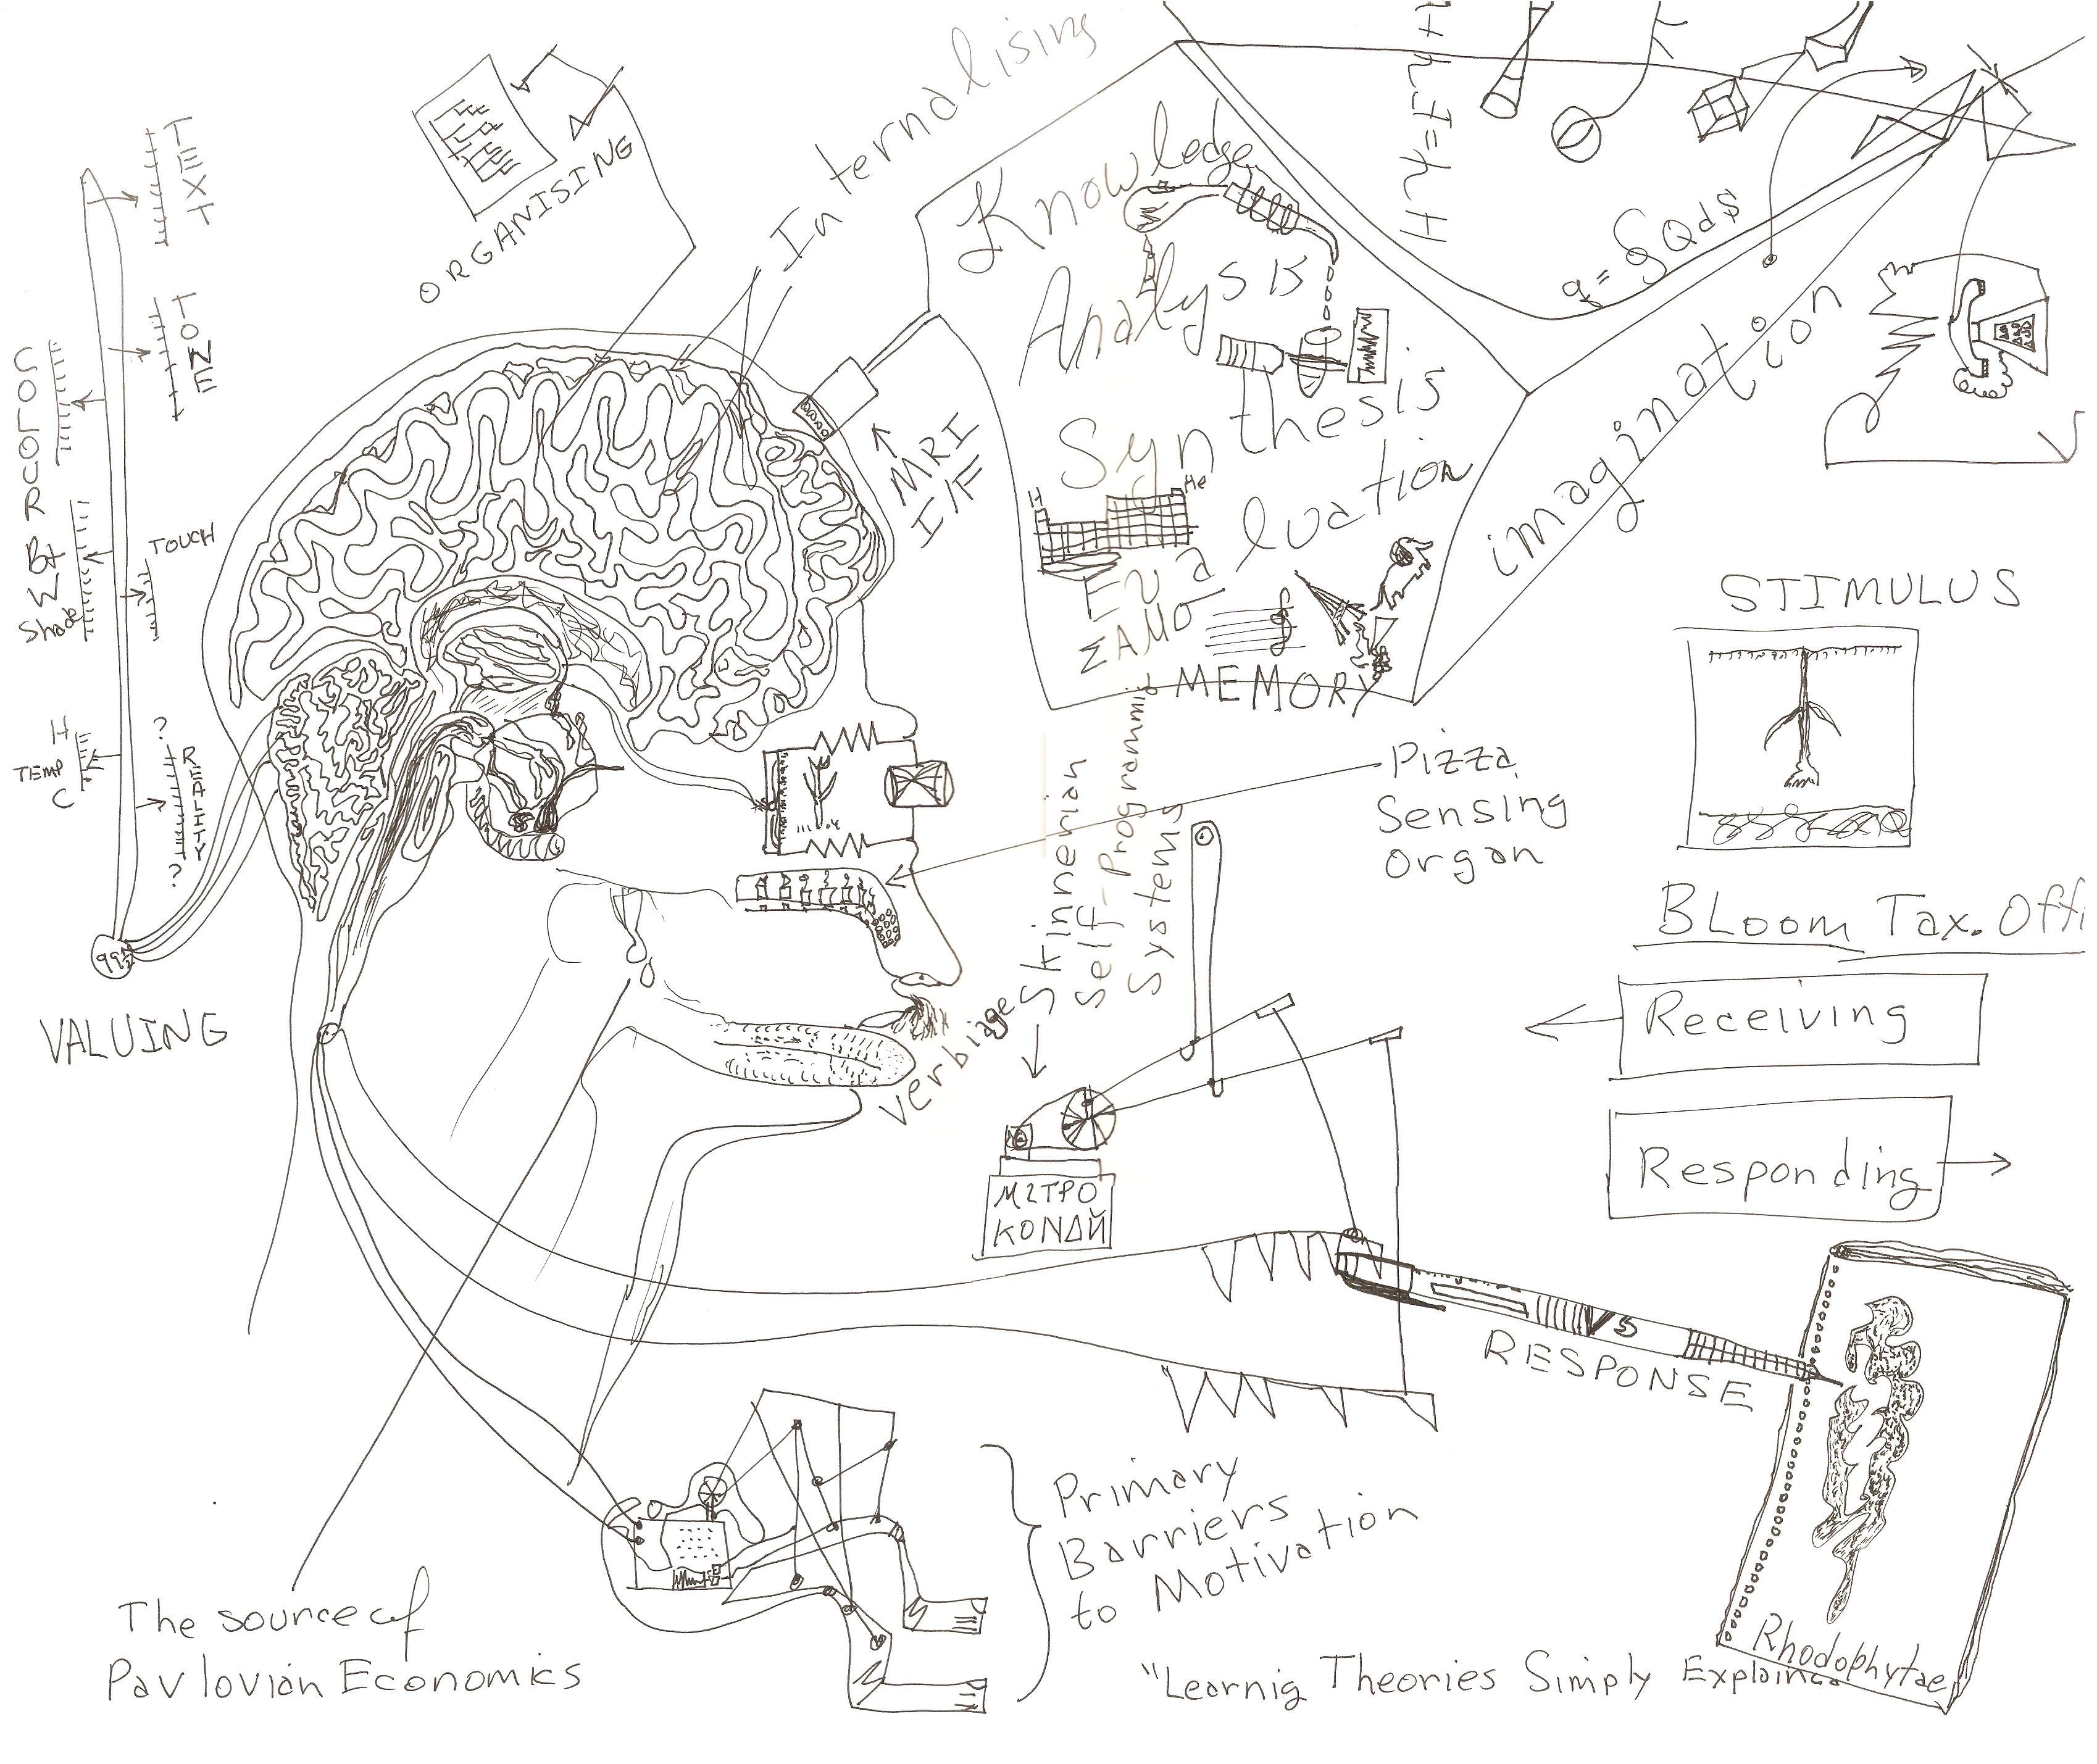 Internalising
ORGANISING
TEXT
TONE
COLOR
TOUCH
Shade
H
TEMP
C
?
REALITY
?
992
VALUING
MRI
I/F
Knowledge
Analysis
Synthesis
H
He
Evaluation
MEMORY
Hψ=Eψ
q=∮Qds
imagination
STIMULUS
Pizza
Sensing
organ
BLoom Tax. Offi
Receiving
Responding
Skinnerian
Self-Programming
Systems
verbiage
МΣТРО
КОNΔЙ
V5
RESPONSE
Primary
Barriers
to Motivation
The source of
Pavlovian Economics
"Learnig Theories Simply Explained
Rhodophytae